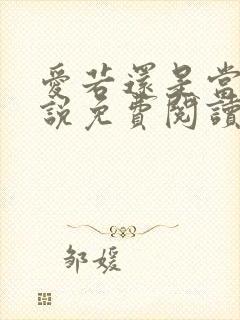 愛若還是當
說免費閱讀
鄒媛